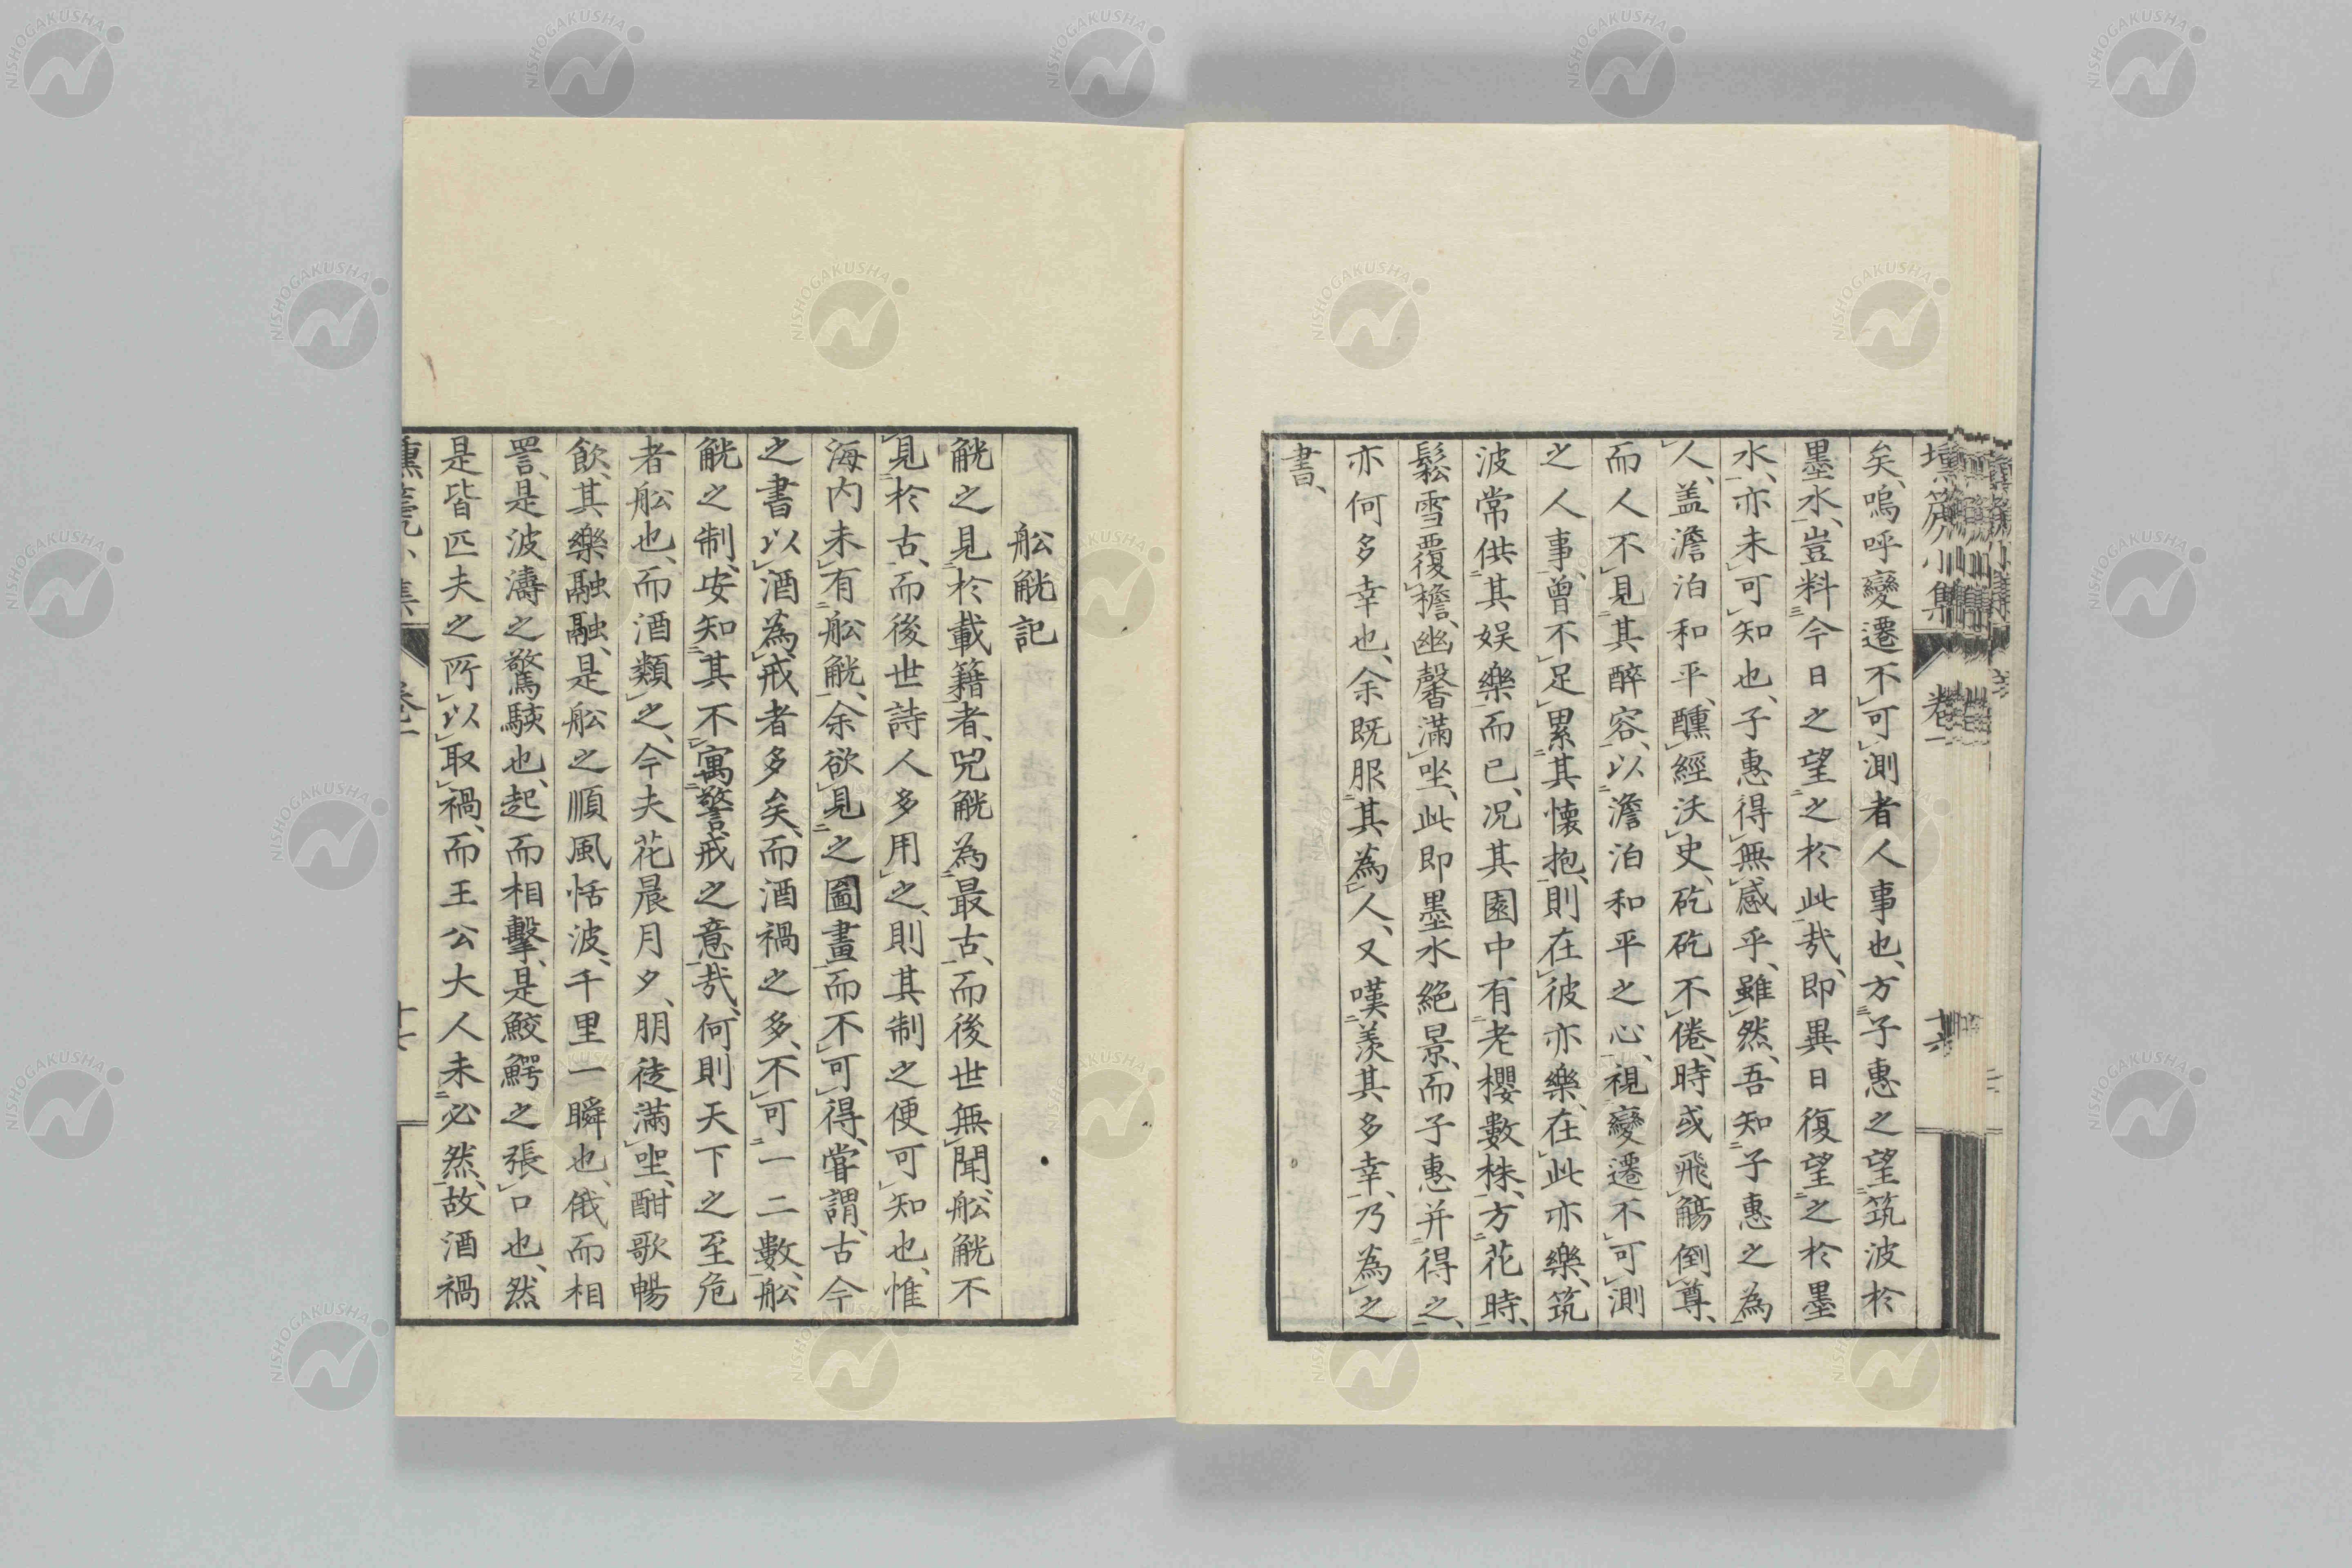 壎箎小集 卷一 十六
矣、嗚呼變遷不可測者人事也、方子惠之望筑波於
墨水、豈料今日之望之於此哉、即異日復望之於墨
水、亦未可知也、子惠得無感乎、雖然、吾知子惠之為
人、盖澹泊和平、醺經沃史、矻矻不倦、時或飛觴倒尊、
而人不見其醉容、以澹泊和平之心、視變遷不可測
之人事、曾不足累其懷抱、則在彼亦樂、在此亦樂、筑
波常供其娯樂而已、况其園中有老櫻數株、方花時、
鬆雪覆檐、幽馨滿坐、此即墨水絕景、而子惠并得之、
亦何多幸也、余既服其為人、又嘆羨其多幸、乃為之
書、
舩觥記
觥之見於載籍者、兕觥為最古、而後世無聞、舩觥不
見於古、而後世詩人多用之、則其制之便可知也、惟
海内未有舩觥、余欲見之圖畫而不可得、嘗謂、古今
之書以酒為戒者多矣、而酒禍之多、不可一二數、舩
觥之制、安知其不寓警戒之意哉、何則天下之至危
者舩也、而酒類之、今夫花晨月夕、朋徒滿坐、酣歌暢
飲、其樂融融、是舩之順風恬波、千里一瞬也、俄而相
詈、是波濤之驚駭也、起而相擊、是鮫鰐之張口也、然
是皆匹夫之所以取禍、而王公大人未必然、故酒禍